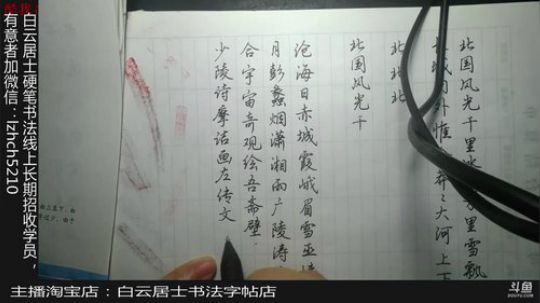 北国风光千里冰里雪飘
城内外惟莽〻大河上下
北北北
北国风光千
沧海日赤城霞峨眉雪巫
月彭蠡烟潇湘雨广陵涛
合宇宙奇观绘吾斋壁
少陵诗摩诘画左传文
白云居士硬笔书法线上长期招收学员，
有意者加微信：lzhch5210
主播淘宝店：白云居士书法字帖店
斗鱼